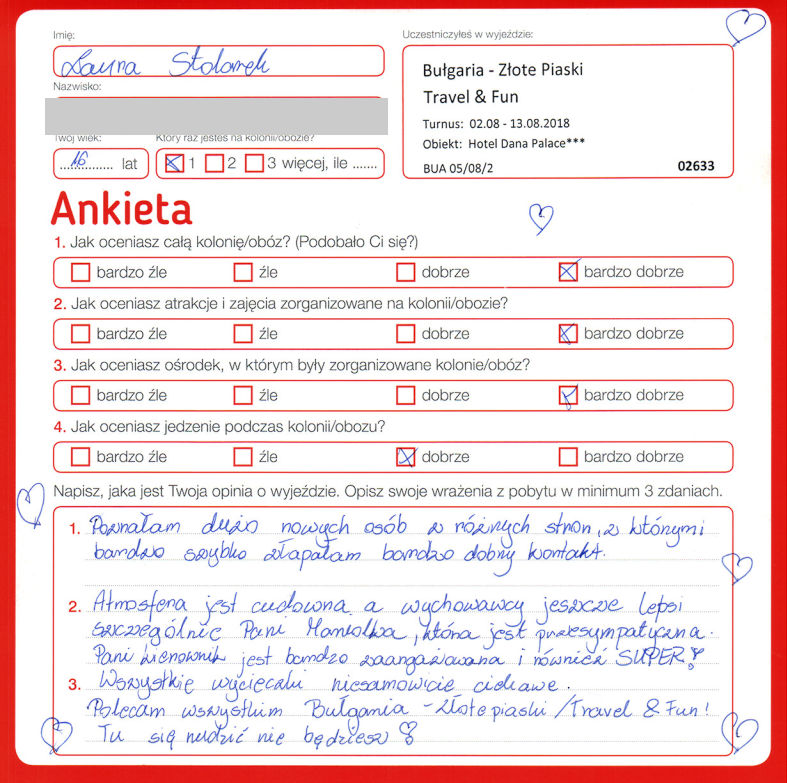 Imię:
Laura Stolarek
Nazwisko:
Twój wiek:
Który raz jesteś na kolonii/obozie?
16 lat
1 2 3 więcej, ile .......
Uczestniczyłeś w wyjeździe:
Bułgaria - Złote Piaski
Travel & Fun
Turnus: 02.08 - 13.08.2018
Obiekt: Hotel Dana Palace***
BUA 05/08/2 02633
Ankieta
1. Jak oceniasz całą kolonię/obóz? (Podobało Ci się?)
bardzo źle źle dobrze bardzo dobrze
2. Jak oceniasz atrakcje i zajęcia zorganizowane na kolonii/obozie?
bardzo źle źle dobrze bardzo dobrze
3. Jak oceniasz ośrodek, w którym były zorganizowane kolonie/obóz?
bardzo źle źle dobrze bardzo dobrze
4. Jak oceniasz jedzenie podczas kolonii/obozu?
bardzo źle źle dobrze bardzo dobrze
Napisz, jaka jest Twoja opinia o wyjeździe. Opisz swoje wrażenia z pobytu w minimum 3 zdaniach.
1. Poznałam dużo nowych osób z różnych stron, z którymi
bardzo szybko złapałam bardzo dobry kontakt.
2. Atmosfera jest cudowna a wychowawcy jeszcze lepsi
szczególnie Pani Mariolka, która jest przesympatyczna.
Pani kierownik jest bardzo zaangażowana i również SUPER!
3. Wszystkie wycieczki niesamowicie ciekawe.
Polecam wszystkim Bułgaria - Złote piaski / Travel & Fun!
Tu się nudzić nie będziesz